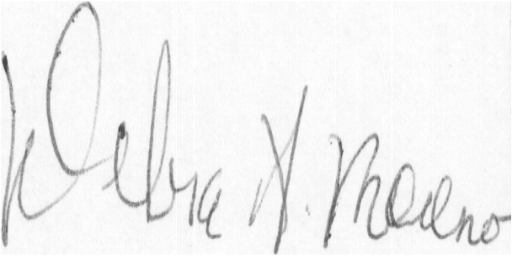 Debra X. Moreno